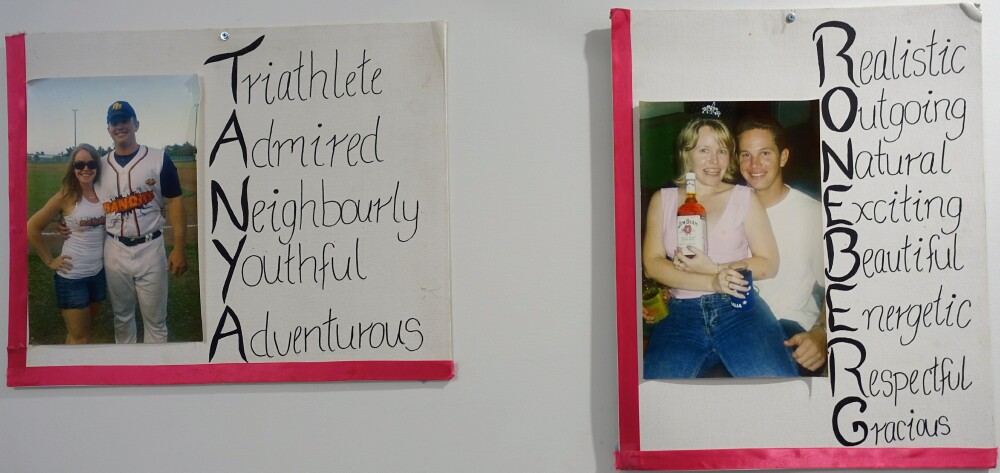 Triathlete
Admired
Neighbourly
Youthful
Adventurous
Realistic
Outgoing
Natural
Exciting
Beautiful
Energetic
Respectful
Gracious
JIM BEAM